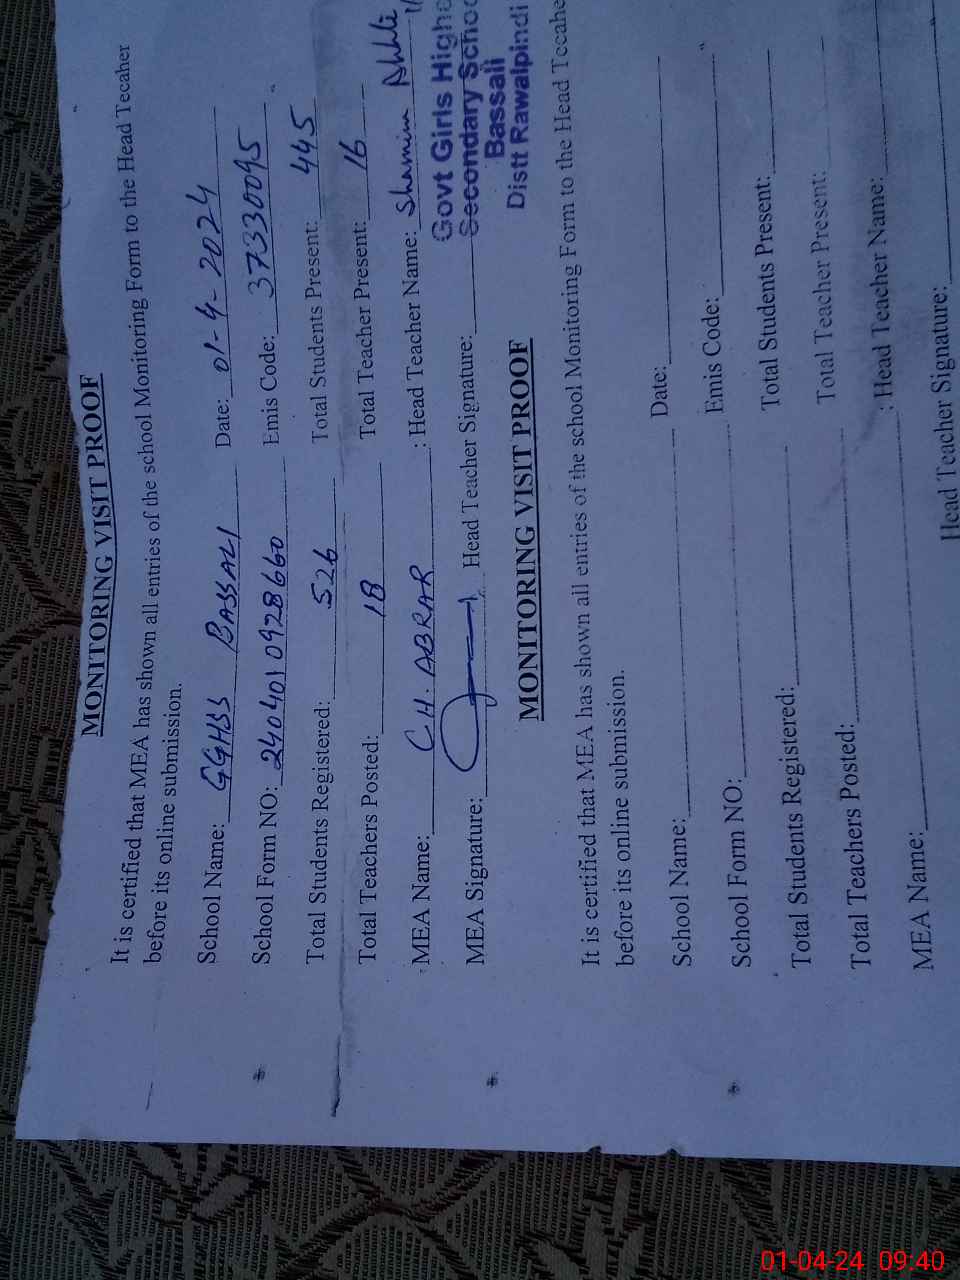 MONITORING VISIT PROOF
It is certified that MEA has shown all entries of the school Monitoring Form to the Head Tecaher
before its online submission.
School Name: GGHSS BASSALI Date: 01-4-2024
School Form NO: 2404010928660 Emis Code: 37330095
Total Students Registered: 526 Total Students Present: 445
Total Teachers Posted: 18 Total Teacher Present: 16
MEA Name: CH. ABRAR : Head Teacher Name: Shamim
MEA Signature: Head Teacher Signature:
Govt Girls Highe
Secondary Schoo
Bassali
Distt Rawalpindi
MONITORING VISIT PROOF
It is certified that MEA has shown all entries of the school Monitoring Form to the Head Tecahe
before its online submission.
School Name: Date:
School Form NO: Emis Code:
Total Students Registered: Total Students Present:
Total Teachers Posted: Total Teacher Present:
MEA Name: : Head Teacher Name:
Head Teacher Signature:
01-04-24 09:40